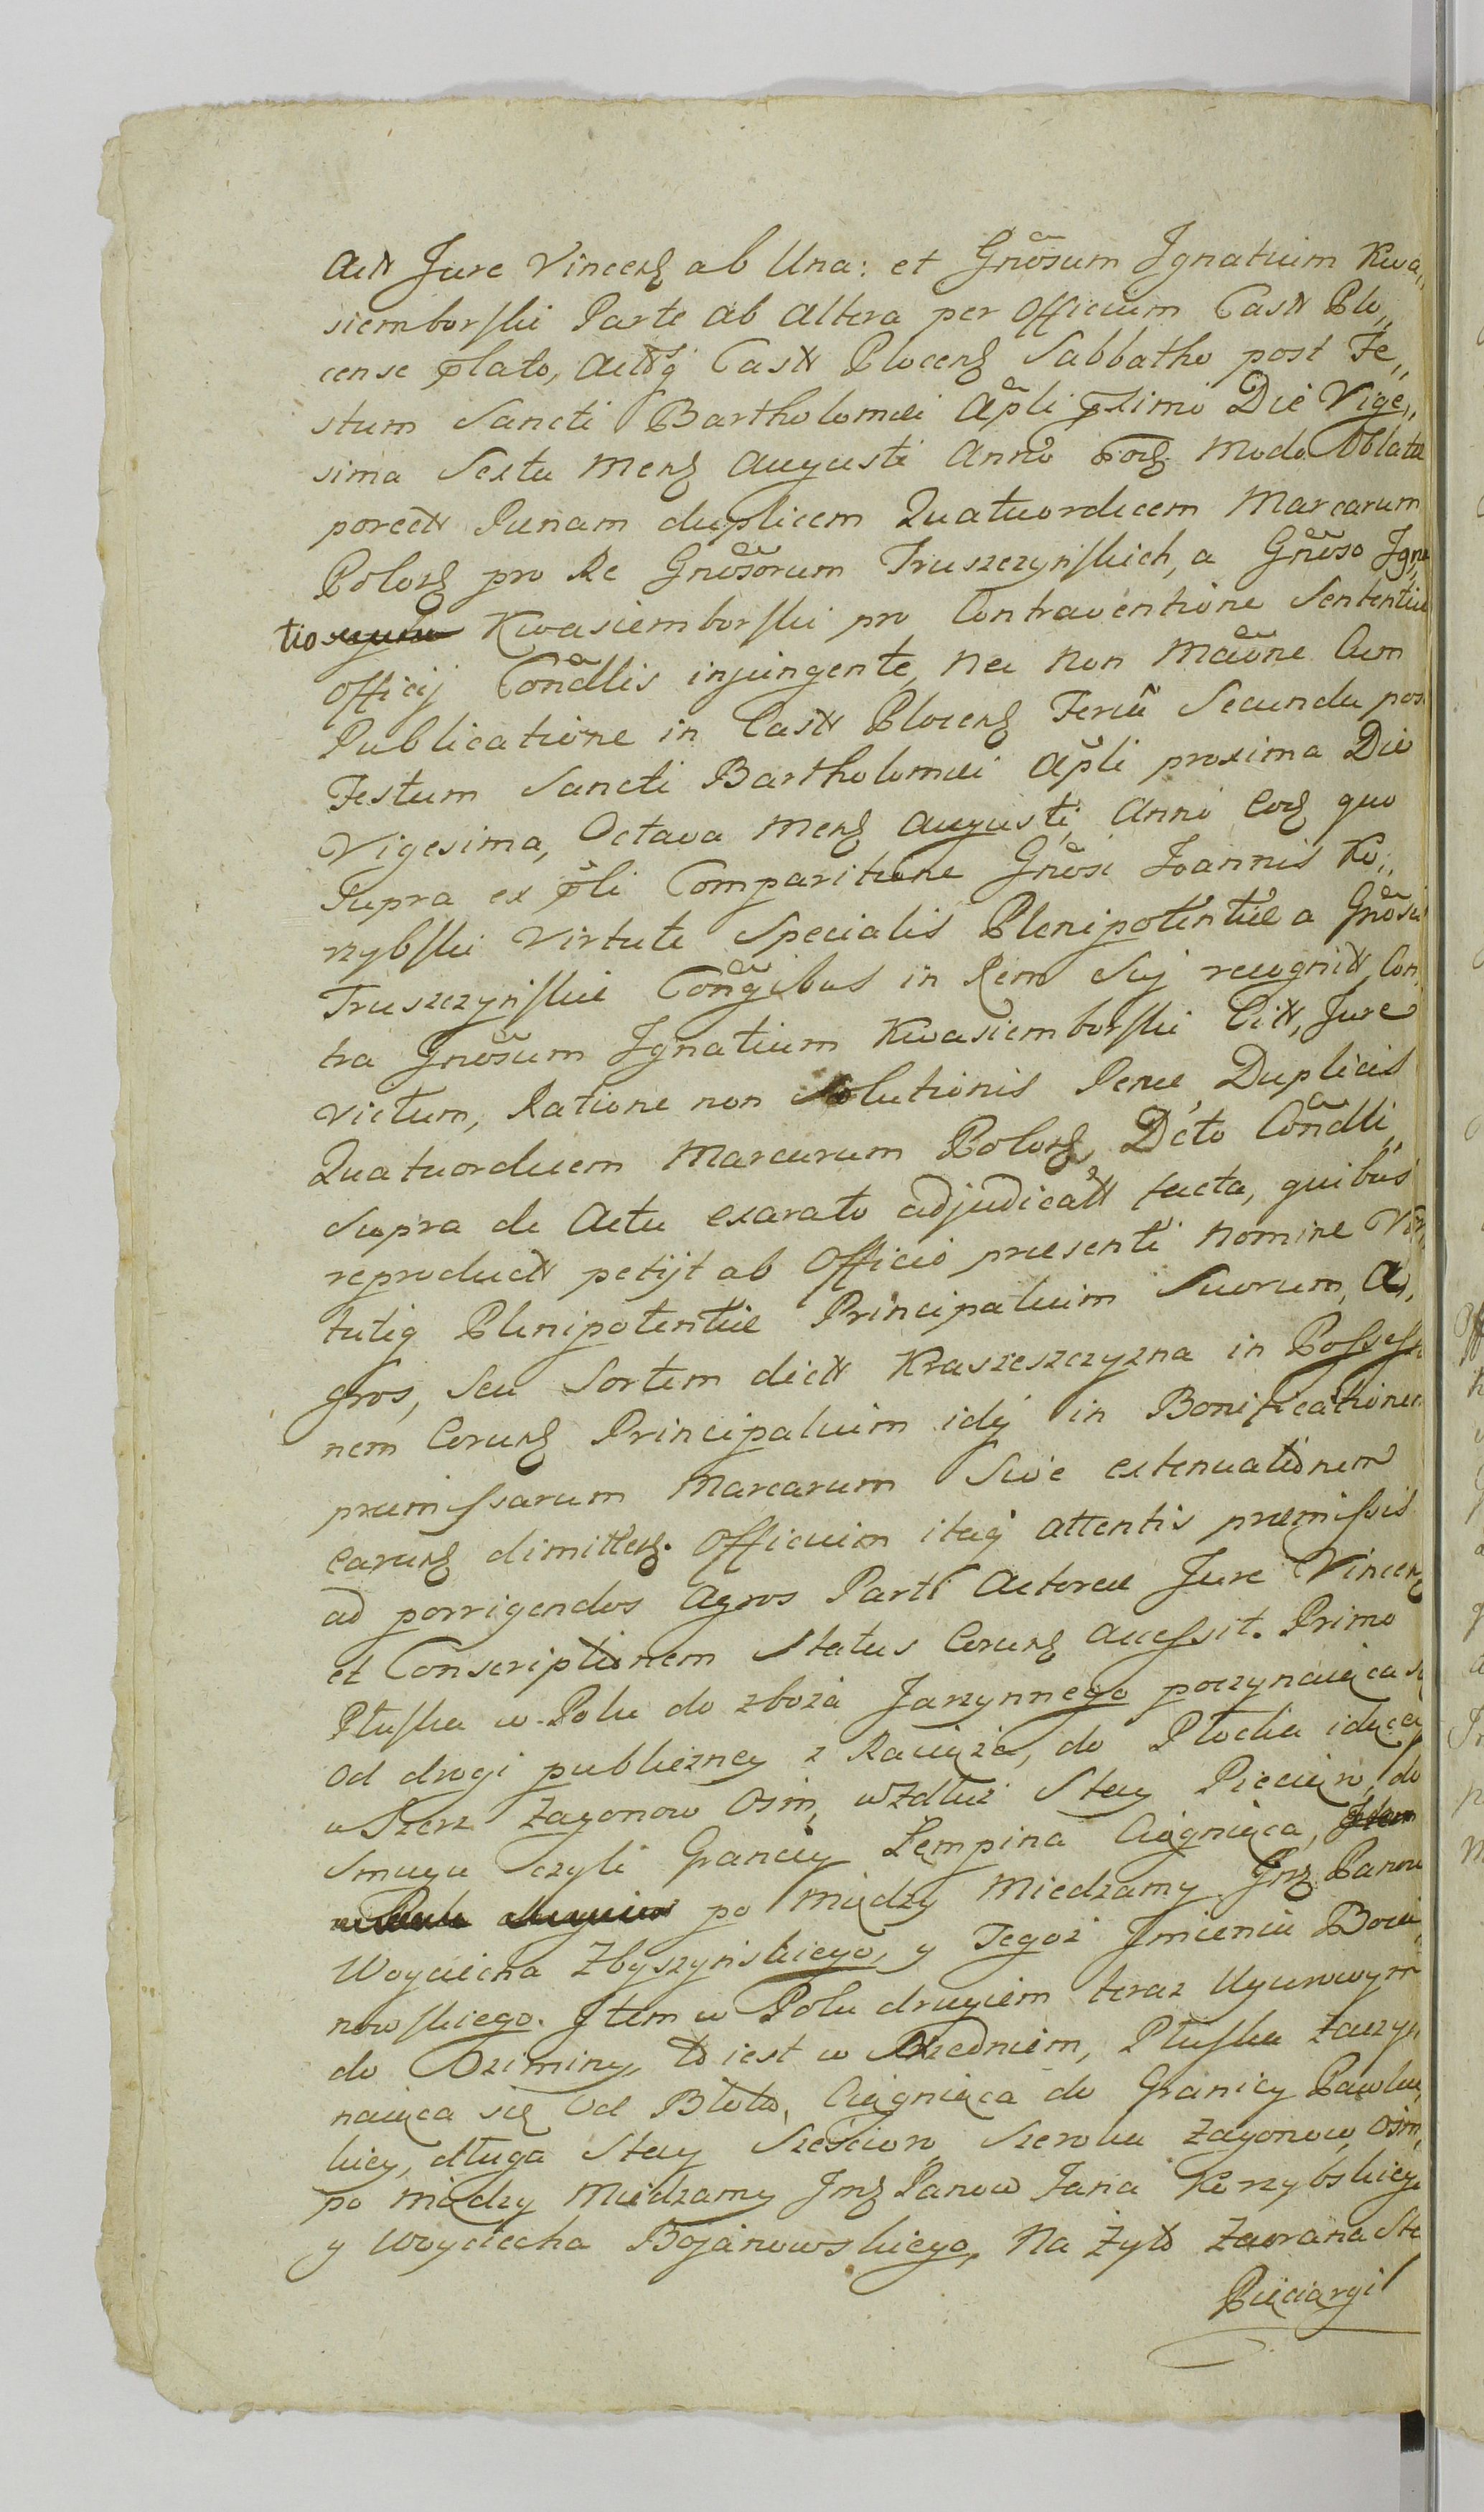 Act Jure Vincen ab Una: et Gnosum Ignatium Kwa,,
siemborski Parte ab altera per Officium Cast Plo,,
cense plato, actisq Cast Plocen Sabbatho post Fe,,
stum Sancti Bartholomæi Apli pximo Die Vige,,
sima Sexta Mens Augusti Anno Eod Modo Oblata
porect Pænam duplicem Quatuordecem Marcarum
Polon pro Re Gnosorum Truszczynskich, a Gnoso Igna
tio Kwasiemborski pro Contraventione Sententiæ
Officij Condlis injungente, nec non Maone Cum
Publicatione in Cast Plocen Feria Secunda post
Festum Sancti Bartholomæi Apli proxima Die
Vigesima, Octava Mens Augusti, Anni Eod quo
Supra ex pli Comparitione Gnosi Joannis Ko,,
rzybski Virtute Specialis Plenipotentiæ a Gnosis
Truszczynskie Congibus in Rem Sui recognit, Con,
tra Gnosum Ignatium Kwasiemborski Cit, Jure
victum, Ratione non Solutionis Penæ, Duplicis
Quatuordecem Marcarum Polon, Dcto Condli,,
Supra de Actu exarato adjudicat facta, quibus
reproduct petijt ab Officio præsenti nomine Vir,
tutiq Plenipotentiæ Principalium Suorum, A,
gros, Seu Sortem dict Kraszeszczyzna in Possessio
nem Eorund Principalium idq in Bonificationem
præmissarum Marcarum Sive extenuationem
Earund dimitten. Officium itaq attentis præmissis
ad porrigendos Agros Parti Actoreæ Jure Vincen
et Conscriptionem Status Eorund accessit. Primo
Płuska w Polu do zboża Jarzynnego poczynaiąca się
Od drogi publiczney z Raciąża, do Płocka idącey
w Szerz Zagonow Osm, wzdłuż Stay Pięciu, do
Smugu czyli Granicy Łempina Ciągnąca,
po między Miedzamy Jmz Panow
Woyciecha Zbyszynskiego, y Tegoż Jmieniu Boia,
nowskiego. Item w Polu drugiem teraz Ugurowym
do Oziminy, to iest w Srzedniem, Płuska Zaczy,
naiąca się Od Błoto, Ciągnąca do Granicy Pawłw,
kiey, długa Stay Sześciow, Szeroka Zagonow, Osm,
po między Miedzamy Jmz Panow Jana Korzybskiego
y Woyciecha Bojanowskiego, Na Zyto Zaorana Sta
Pięciorgi